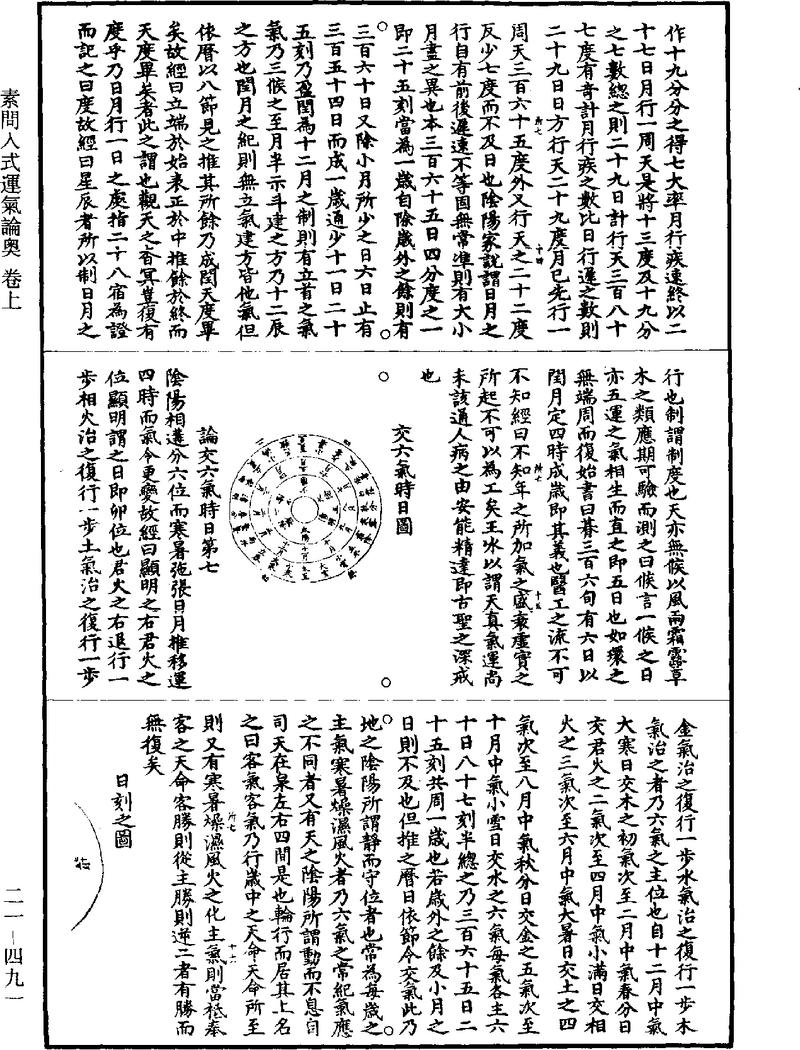 素問入式運氣論奧 卷上
作十九分分之得七大率月行疾速終以二
十七日月行一周天是將十三度及十九分
之七數總之則二十九日計行天三百八十
七度有奇計月行疾之數比日行遲之數則
二十九日日方行天二十九度月已先行一
周天三百六十五度外又行天之二十二度
反少七度而不及日也陰陽家說謂日月之
行自有前後遲速不等固無常準則有大小
月盡之異也本三百六十五日四分度之一
即二十五刻當為一歲自除歲外之餘則有
三百六十日又除小月所少之日六日止有
三百五十四日而成一歲通少十一日二十
五刻乃盈閏為十二月之制則有立首之氣
氣乃三候之至月半示斗建之方乃十二辰
之方也閏月之紀則無立氣建方皆他氣但
依曆以八節見之推其所餘乃成閏天度畢
矣故經曰立端於始表正於中推餘於終而
天度畢矣者此之謂也觀天之杳冥豈復有
度乎乃日月行一日之處指二十八宿為證
而記之曰度故經曰星辰者所以制日月之
行也制謂制度也天亦無候以風雨霜露草
木之類應期可驗而測之曰候言一候之日
亦五運之氣相生而直之即五日也如環之
無端周而復始書曰朞三百六旬有六日以
閏月定四時成歲即其義也醫工之流不可
不知經曰不知年之所加氣之盛衰虛實之
所起不可以為工矣王冰以謂天真氣運尚
未該通人病之由安能精達即古聖之深戒
也
交六氣時日圖
論交六氣時日第七
陰陽相遘分六位而寒暑弛張日月推移運
四時而氣令更變故經曰顯明之右君火之
位顯明謂之日即卯位也君火之右退行一
步相火治之復行一步土氣治之復行一步
金氣治之復行一步水氣治之復行一步木
氣治之者乃六氣之主位也自十二月中氣
大寒日交木之初氣次至二月中氣春分日
交君火之二氣次至四月中氣小滿日交相
火之三氣次至六月中氣大暑日交土之四
氣次至八月中氣秋分日交金之五氣次至
十月中氣小雪日交水之六氣每氣各主六
十日八十七刻半總之乃三百六十五日二
十五刻共周一歲也若歲外之餘及小月之
日則不及也但推之曆日依節令交氣此乃
地之陰陽所謂靜而守位者也常為每歲之
主氣寒暑燥濕風火者乃六氣之常紀氣應
之不同者又有天之陰陽所謂動而不息自
司天在泉左右四間是也輪行而居其上名
之曰客氣客氣乃行歲中之天命天命所至
則又有寒暑燥濕風火之化主氣則當袛奉
客之天命客勝則從主勝則逆二者有勝而
無復矣
日刻之圖
二一–四九一